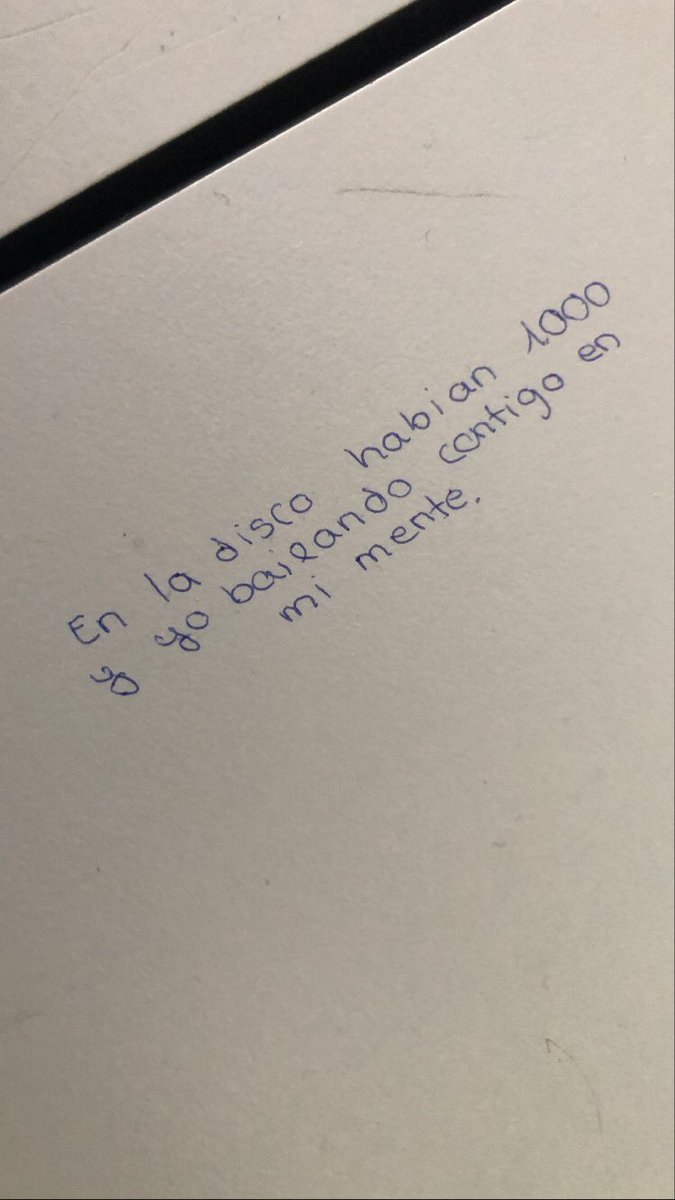 En la disco habian 1000
y yo bailando contigo en
mi mente.